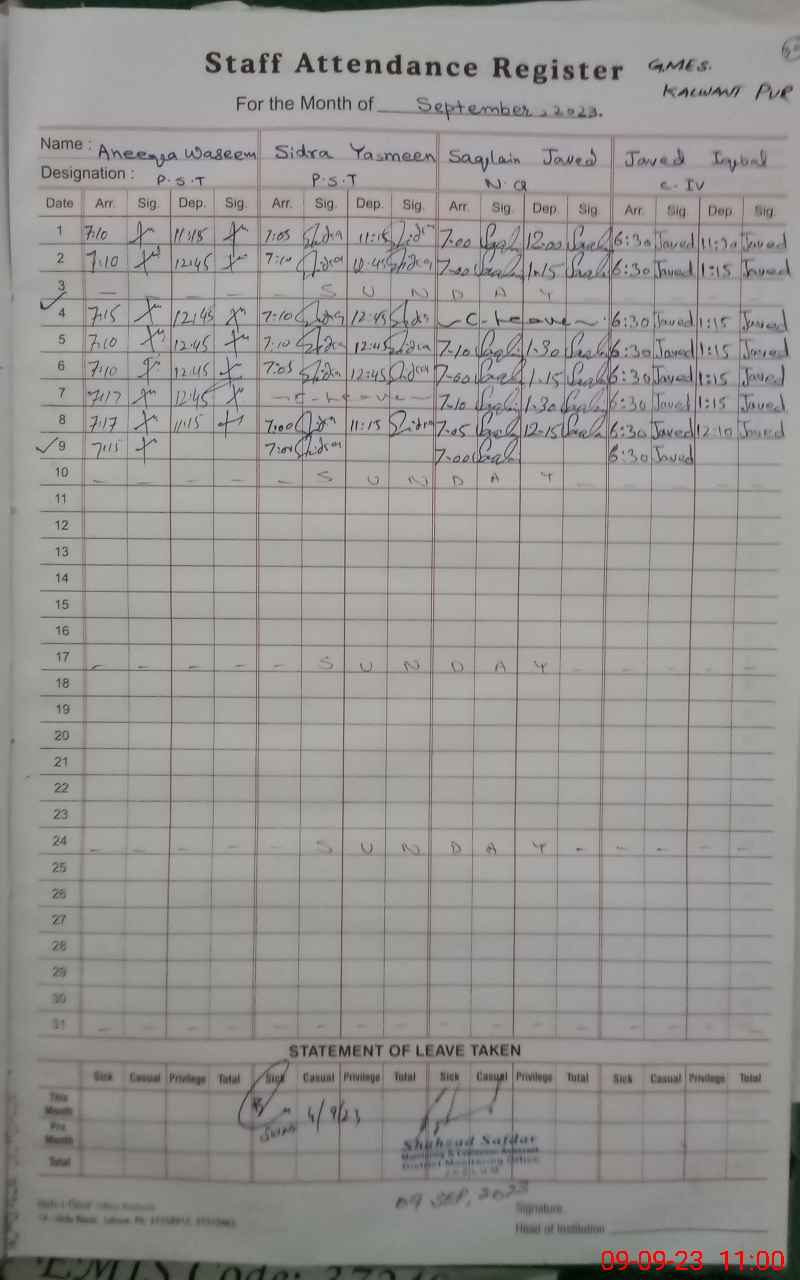 Staff Attendance Register
GMES.
KALWANT PUR
For the Month of September, 2023.
Name : Aneeqa Waseem Sidra Yasmeen Saqlain Javed Javed Iqbal
Designation : P.S.T P.S.T N.Q C-IV
Date Arr. Sig. Dep. Sig. Arr. Sig. Dep. Sig. Arr. Sig. Dep. Sig. Arr. Sig. Dep. Sig.
1 7:10 11:15 7:05 Sidra 11:15 Sidra 7-00 Saql 12-00 Saql 6:30 Javed 11:30 Javed
2 7:10 12:45 7:10 Sidra 12:45 Sidra 7-00 Saql 1-15 Saql 6:30 Javed 1:15 Javed
3 — — — — — S U N D A Y
4 7:15 12:45 7:10 Sidra 12:45 Sidra ~ C-Leave ~ 6:30 Javed 1:15 Javed
5 7:10 12:45 7:10 Sidra 12:45 Sidra 7-10 Saql 1-30 Saql 6:30 Javed 1:15 Javed
6 7:10 12:45 7:05 Sidra 12:45 Sidra 7-00 Saql 1.15 Saql 6:30 Javed 1:15 Javed
7 7:17 12:45 ~ C-Leave ~ 7-10 Saql 1-30 Saql 6:30 Javed 1:15 Javed
8 7:17 11:15 7:00 Sidra 11:15 Sidra 7-05 Saql 12-15 Saql 6:30 Javed 12:10 Javed
9 7:15 7:00 Sidra 7-00 Saql 6:30 Javed
10 — — — — — S U N D A Y — — — — —
11
12
13
14
15
16
17 — — — — — S U N D A Y — — — — —
18
19
20
21
22
23
24 — — — — — S U N D A Y — — — — —
25
26
27
28
29
30
31 — — — — — — — — — — — — — — — —
STATEMENT OF LEAVE TAKEN
Sick Casual Privilege Total Sick Casual Privilege Total Sick Casual Privilege Total Sick Casual Privilege Total
This Month
4/9/23
Pre. Month
Total
Shahzad Safdar
Monitoring & Evaluation Assistant
District Monitoring Office
09 SEP, 2023
Signature
Head of Institution
EMIS Code: 372
09-09-23 11:00